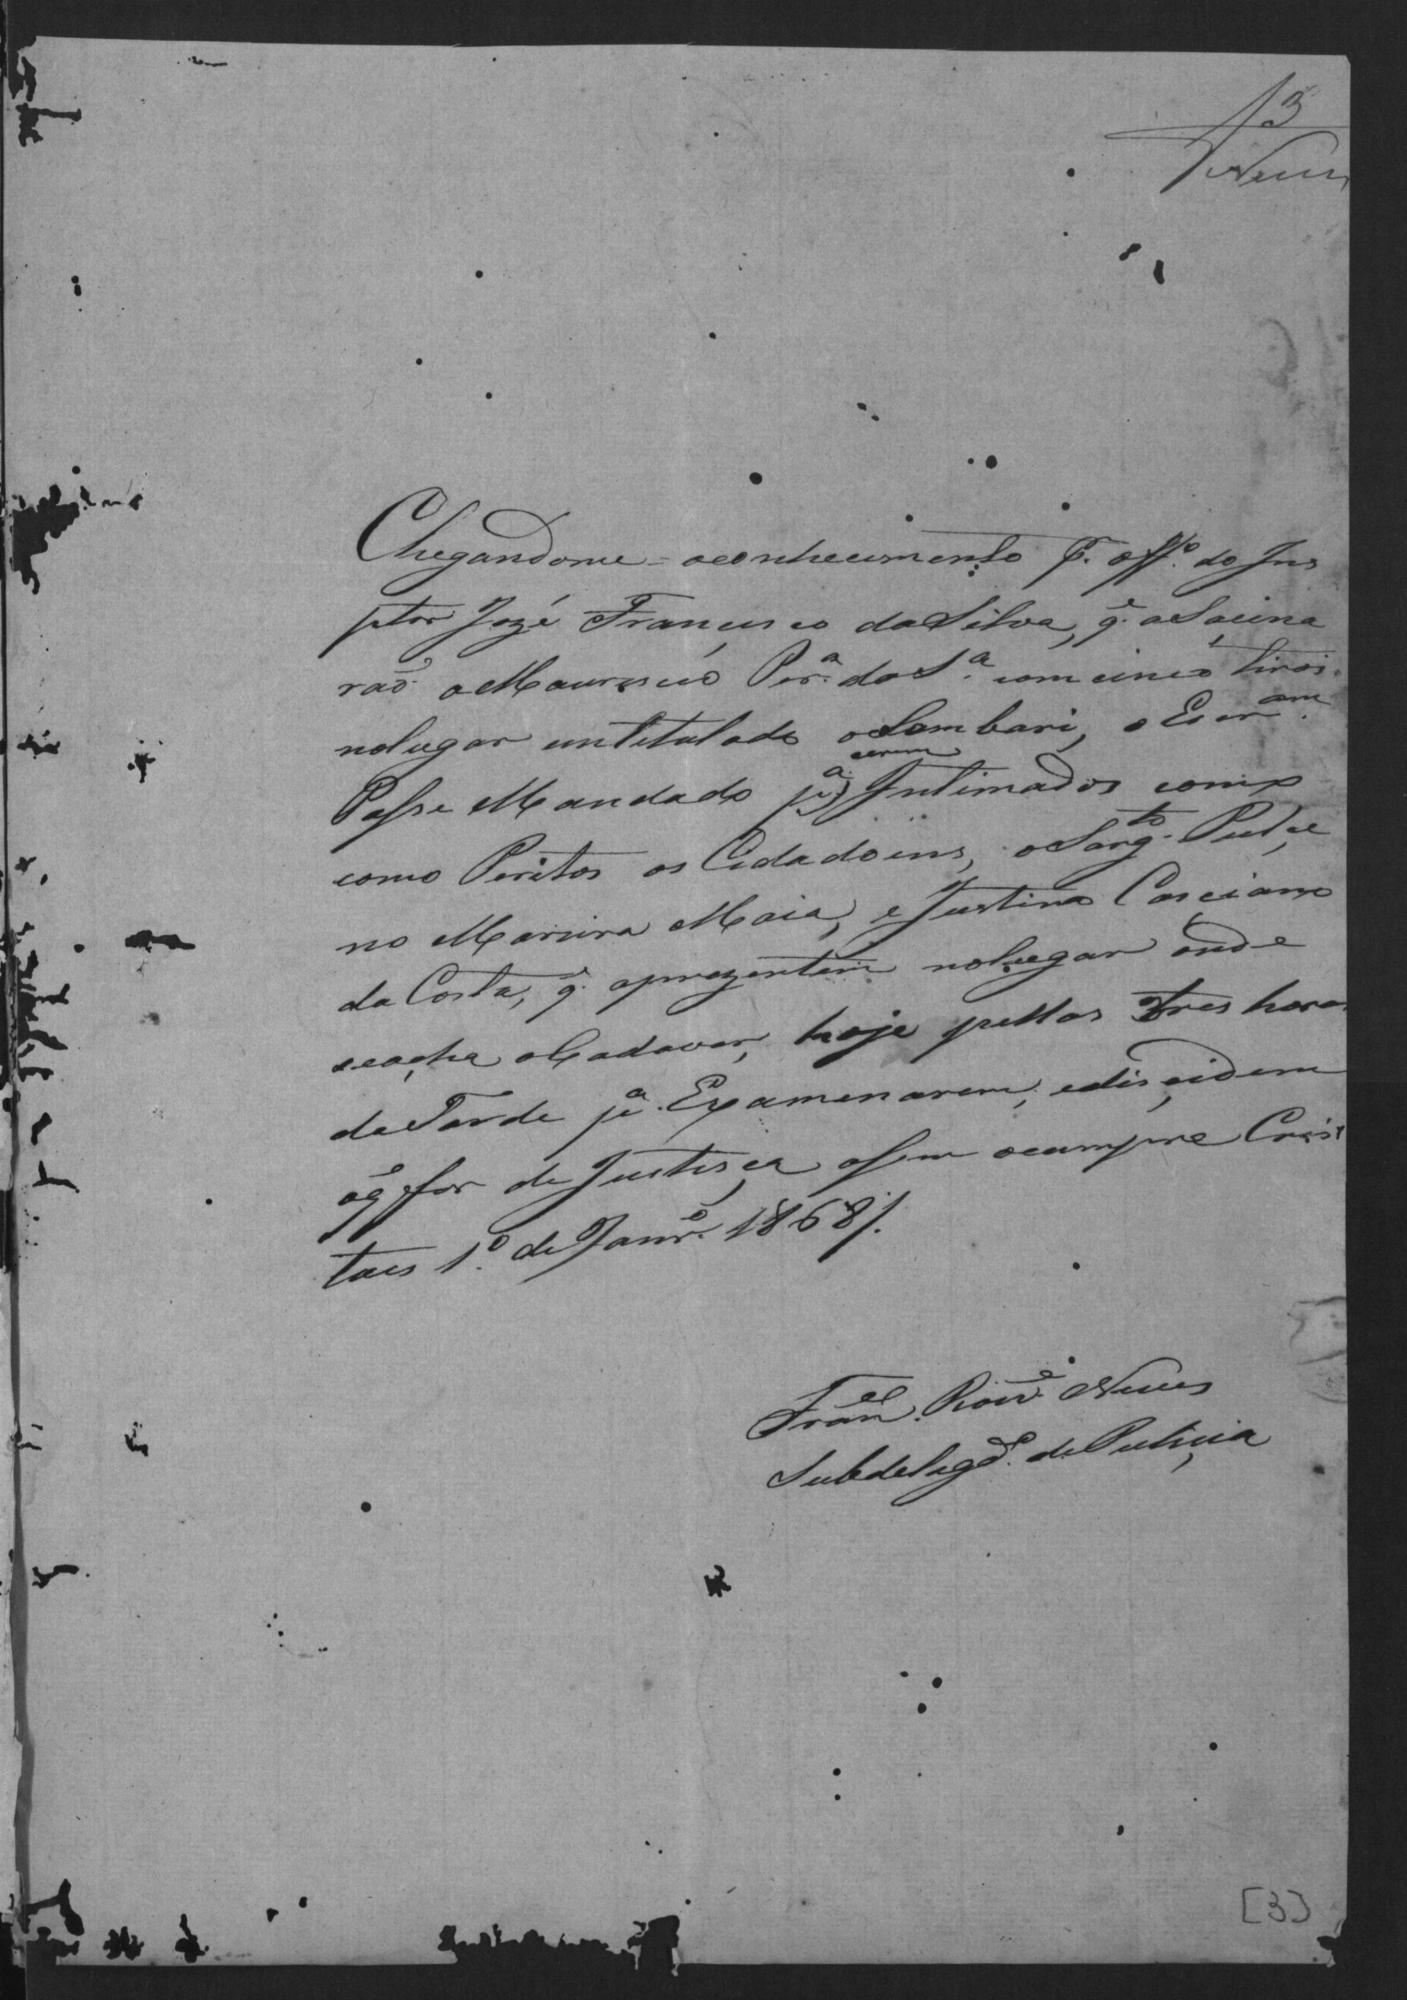 3
Neves
Chegandome aconhecimento P. off.º do Ins
ptor Jozé Francisco da Silva, q.e aSacina
rão oMauricio Per.ª da S.ª com cinco tiros
nolugar intitulado oLambari, o Escr.am
Passe Mandado p.ª serem Intimados como
como Peritos os Cidadoins, o Sarg.to Rufe
no Moreira Maia, e Justino Casciano
da Costa, q.e aprezentem nolugar onde
seacha oCadaver, hoje pellas tres horas
da Tarde p.ª Examenarem, edisçidem
oq.e for de Justiça asim ocumpra Cris
taes 1.º de Janr.º 1868/.
Fran.co Roiz.e Neves
Subdelegd.º de Puliçia
[3]